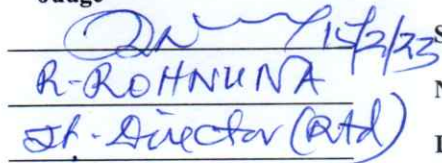 Judge
15/2/23 S
R-ROHNUNA N
Jt. Director (Rtd) I